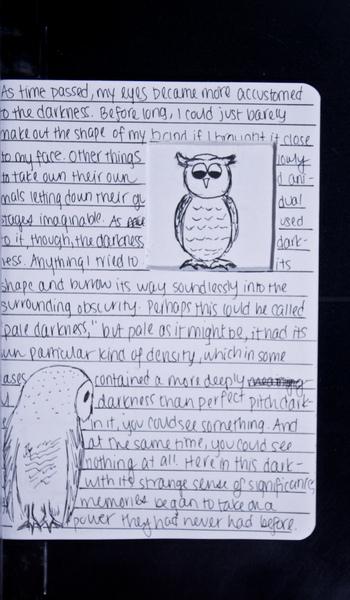 As time passed, my eyes became more accustomed
to the darkness. Before long, I could just barely
make out the shape of my hand if I brought it close
to my face. Other things
to take own their own d ani-
mals letting down their gu dual
stages imaginable. As used
to it, though, the darkness dark-
ness. Anything I tried to its
shape and burrow its way soundlessly into the
surrounding obscurity. Perhaps this could be called
"pale darkness," but pale as it might be, it had its
own particular kind of density, which in some
ases contained a more deeply
darkness than perfect pitch dark-
in it, you could see something. And
at the same time, you could see
nothing at all. Here in this dark-
with its strange sense of significance,
memories began to take on a
power they had never had before.